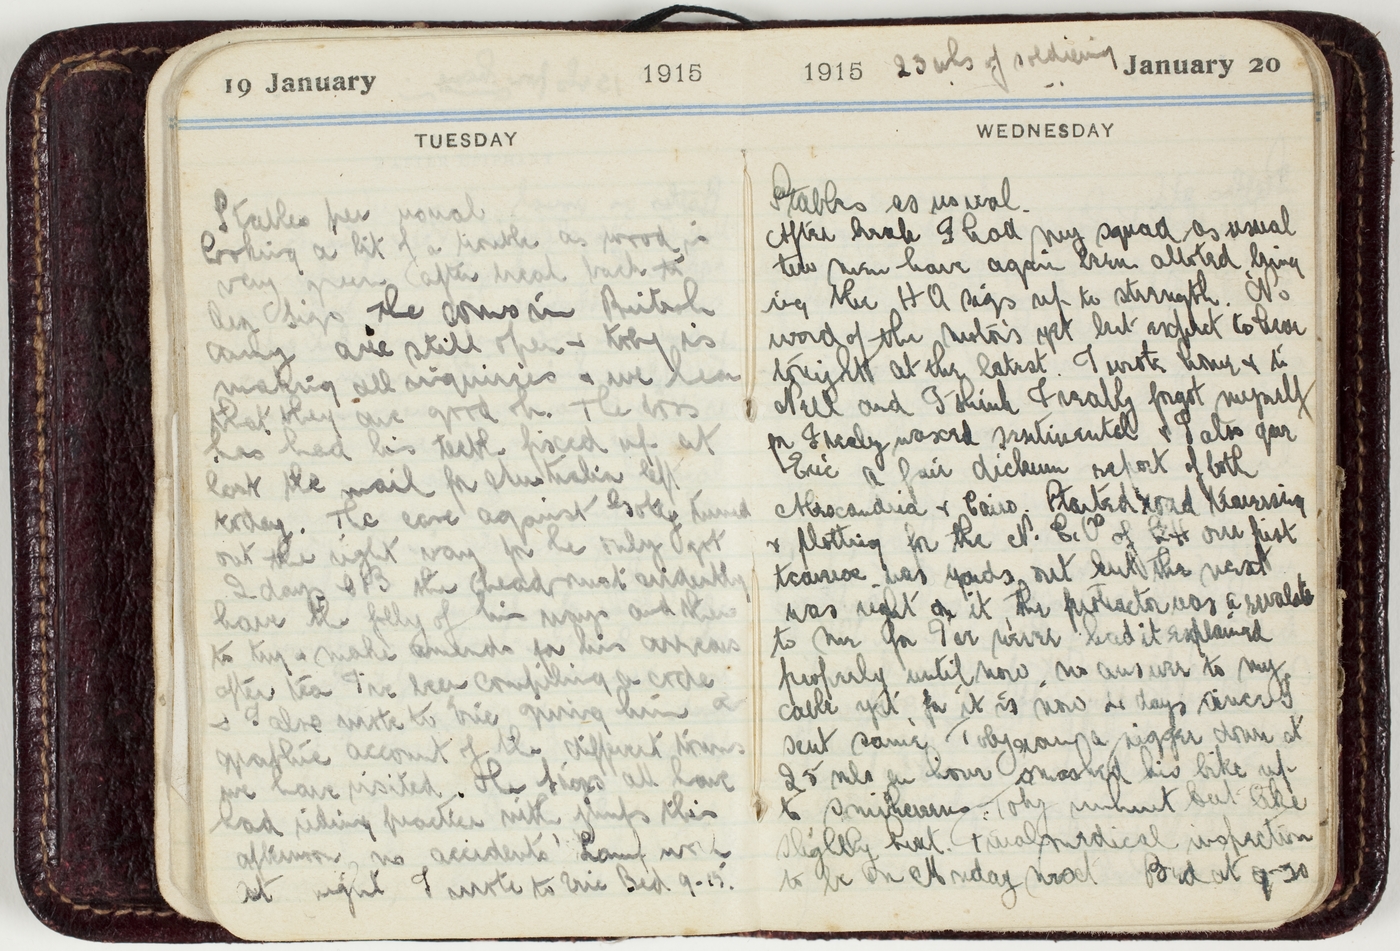 19 January 1915
TUESDAY
Stables per usual
Cooking a bit of a trouble as wood is
very green (after break back to
Leg Sigs the coms in British
army are still open & Toby is
making all inquiries & we hear
that they are good oh. The boss
has had his teeth fixed up at
last the mail for Australia left
today. The case against turned
out the right way for he only got
2 days CB the Head must evidently
have the folly of his ways and tries
to try & make amends for his arrears
after tea I've been compiling a code
& I also wrote to Eric giving him a
graphic account of the different towns
we have visited. The sigs all have
had riding practice with jumps this
afternoon, no accidents! Lamp work
at night I wrote to Eric Bed 9-15.
1915 23 wks of soldiering January 20
WEDNESDAY
Stables as usual.
After break I had my squad as usual
two men have again been alloted bring
ing the HQ sigs up to strength. No
word of the motors yet but expect to have
tonight at the latest. I wrote home & to
Nell and I think I really forgot myself
for I realy waxed sentimental & I also gave
Eric a fair dickum report of both
Alexandria & Cairo. Started road traversing
& plotting for the N.C.O of LH our first
traverse was yards out but the next
was right on it The protractor was a revalate
to me for I've never had it explained
properly until now, no answer to my
cable yet, for it is now 4 days since I
sent same, Toby rang a nigger down at
25 mls an hour smashed his bike up
to smithereens. Toby unhurt but bike
slightly bent. Final medical inspection
to be on Monday next Bed at 9-30